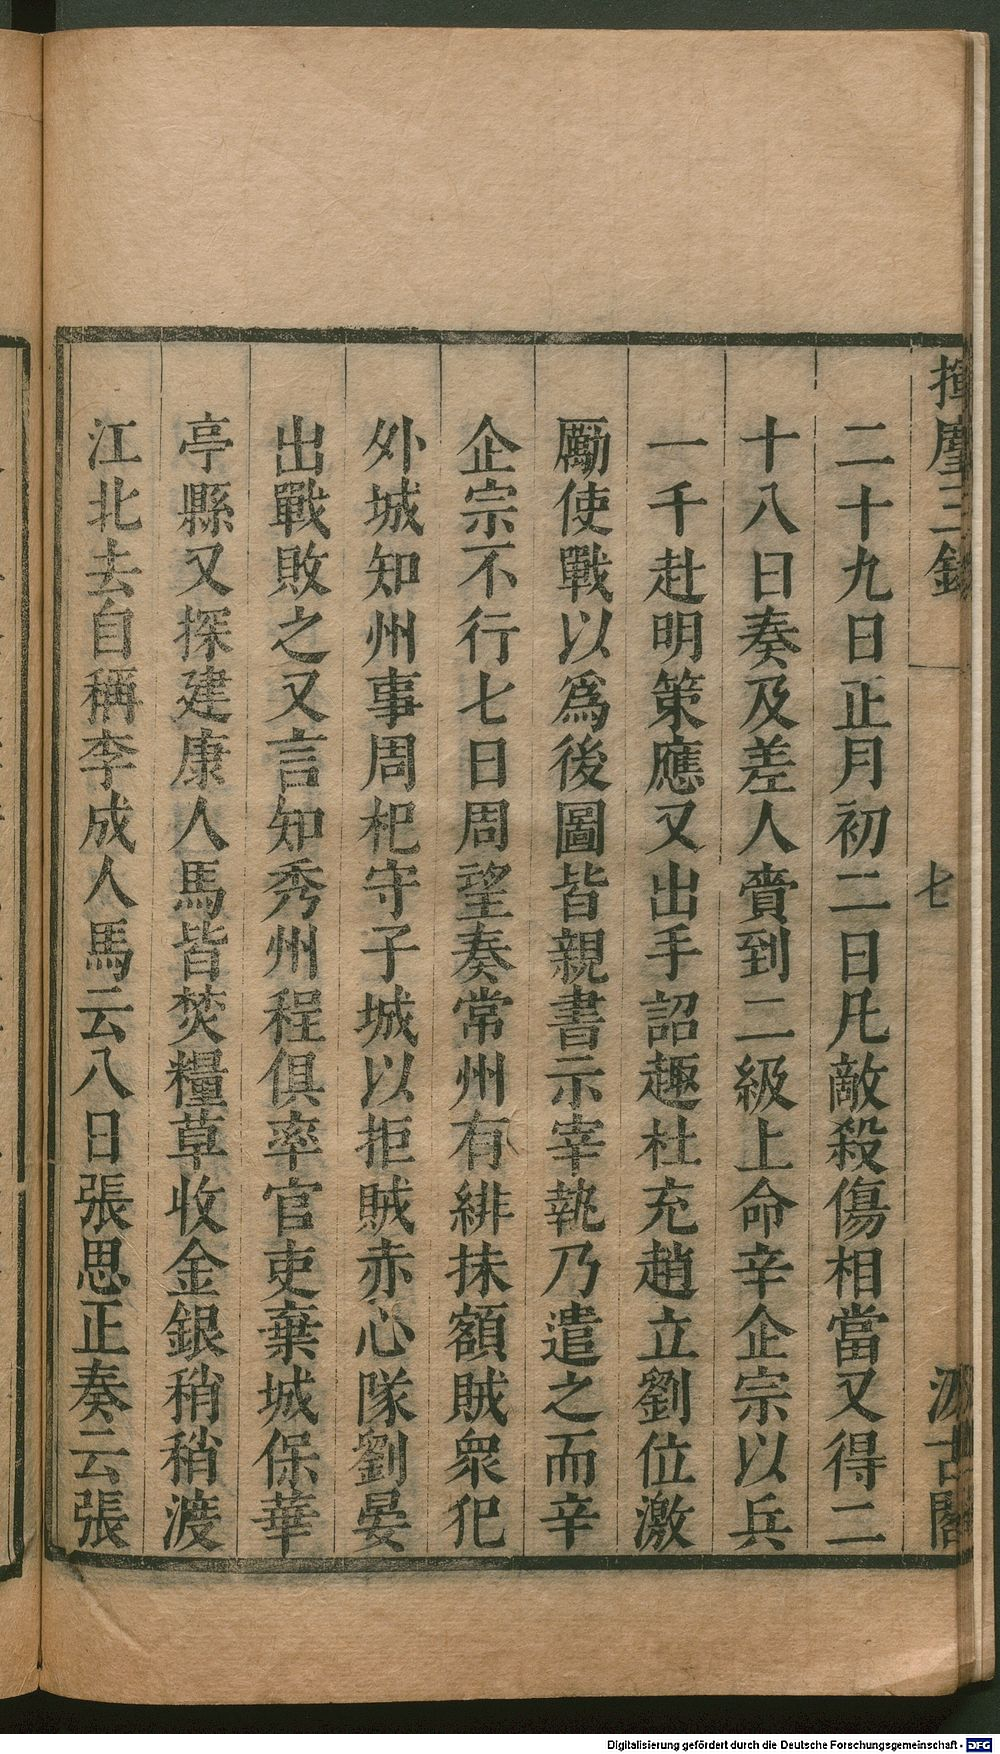 揮麈三錄
七
汲古閣
二十九日正月初二日凡敵殺傷相當又得二
十八日奏及差人賫到二級上命辛企宗以兵
一千赴明策應又出手詔趣杜充趙立劉位激
勵使戰以爲後圖皆親書示宰執乃遣之而辛
企宗不行七日周望奏常州有緋抹額賊衆犯
外城知州事周杞守子城以拒賊赤心隊劉晏
出戰敗之又言知秀州程俱率官吏棄城保華
亭縣又探建康人馬皆焚糧草收金銀稍稍渡
江北去自稱李成人馬云八日張思正奏云張
Digitalisierung gefördert durch die Deutsche Forschungsgemeinschaft - DFG